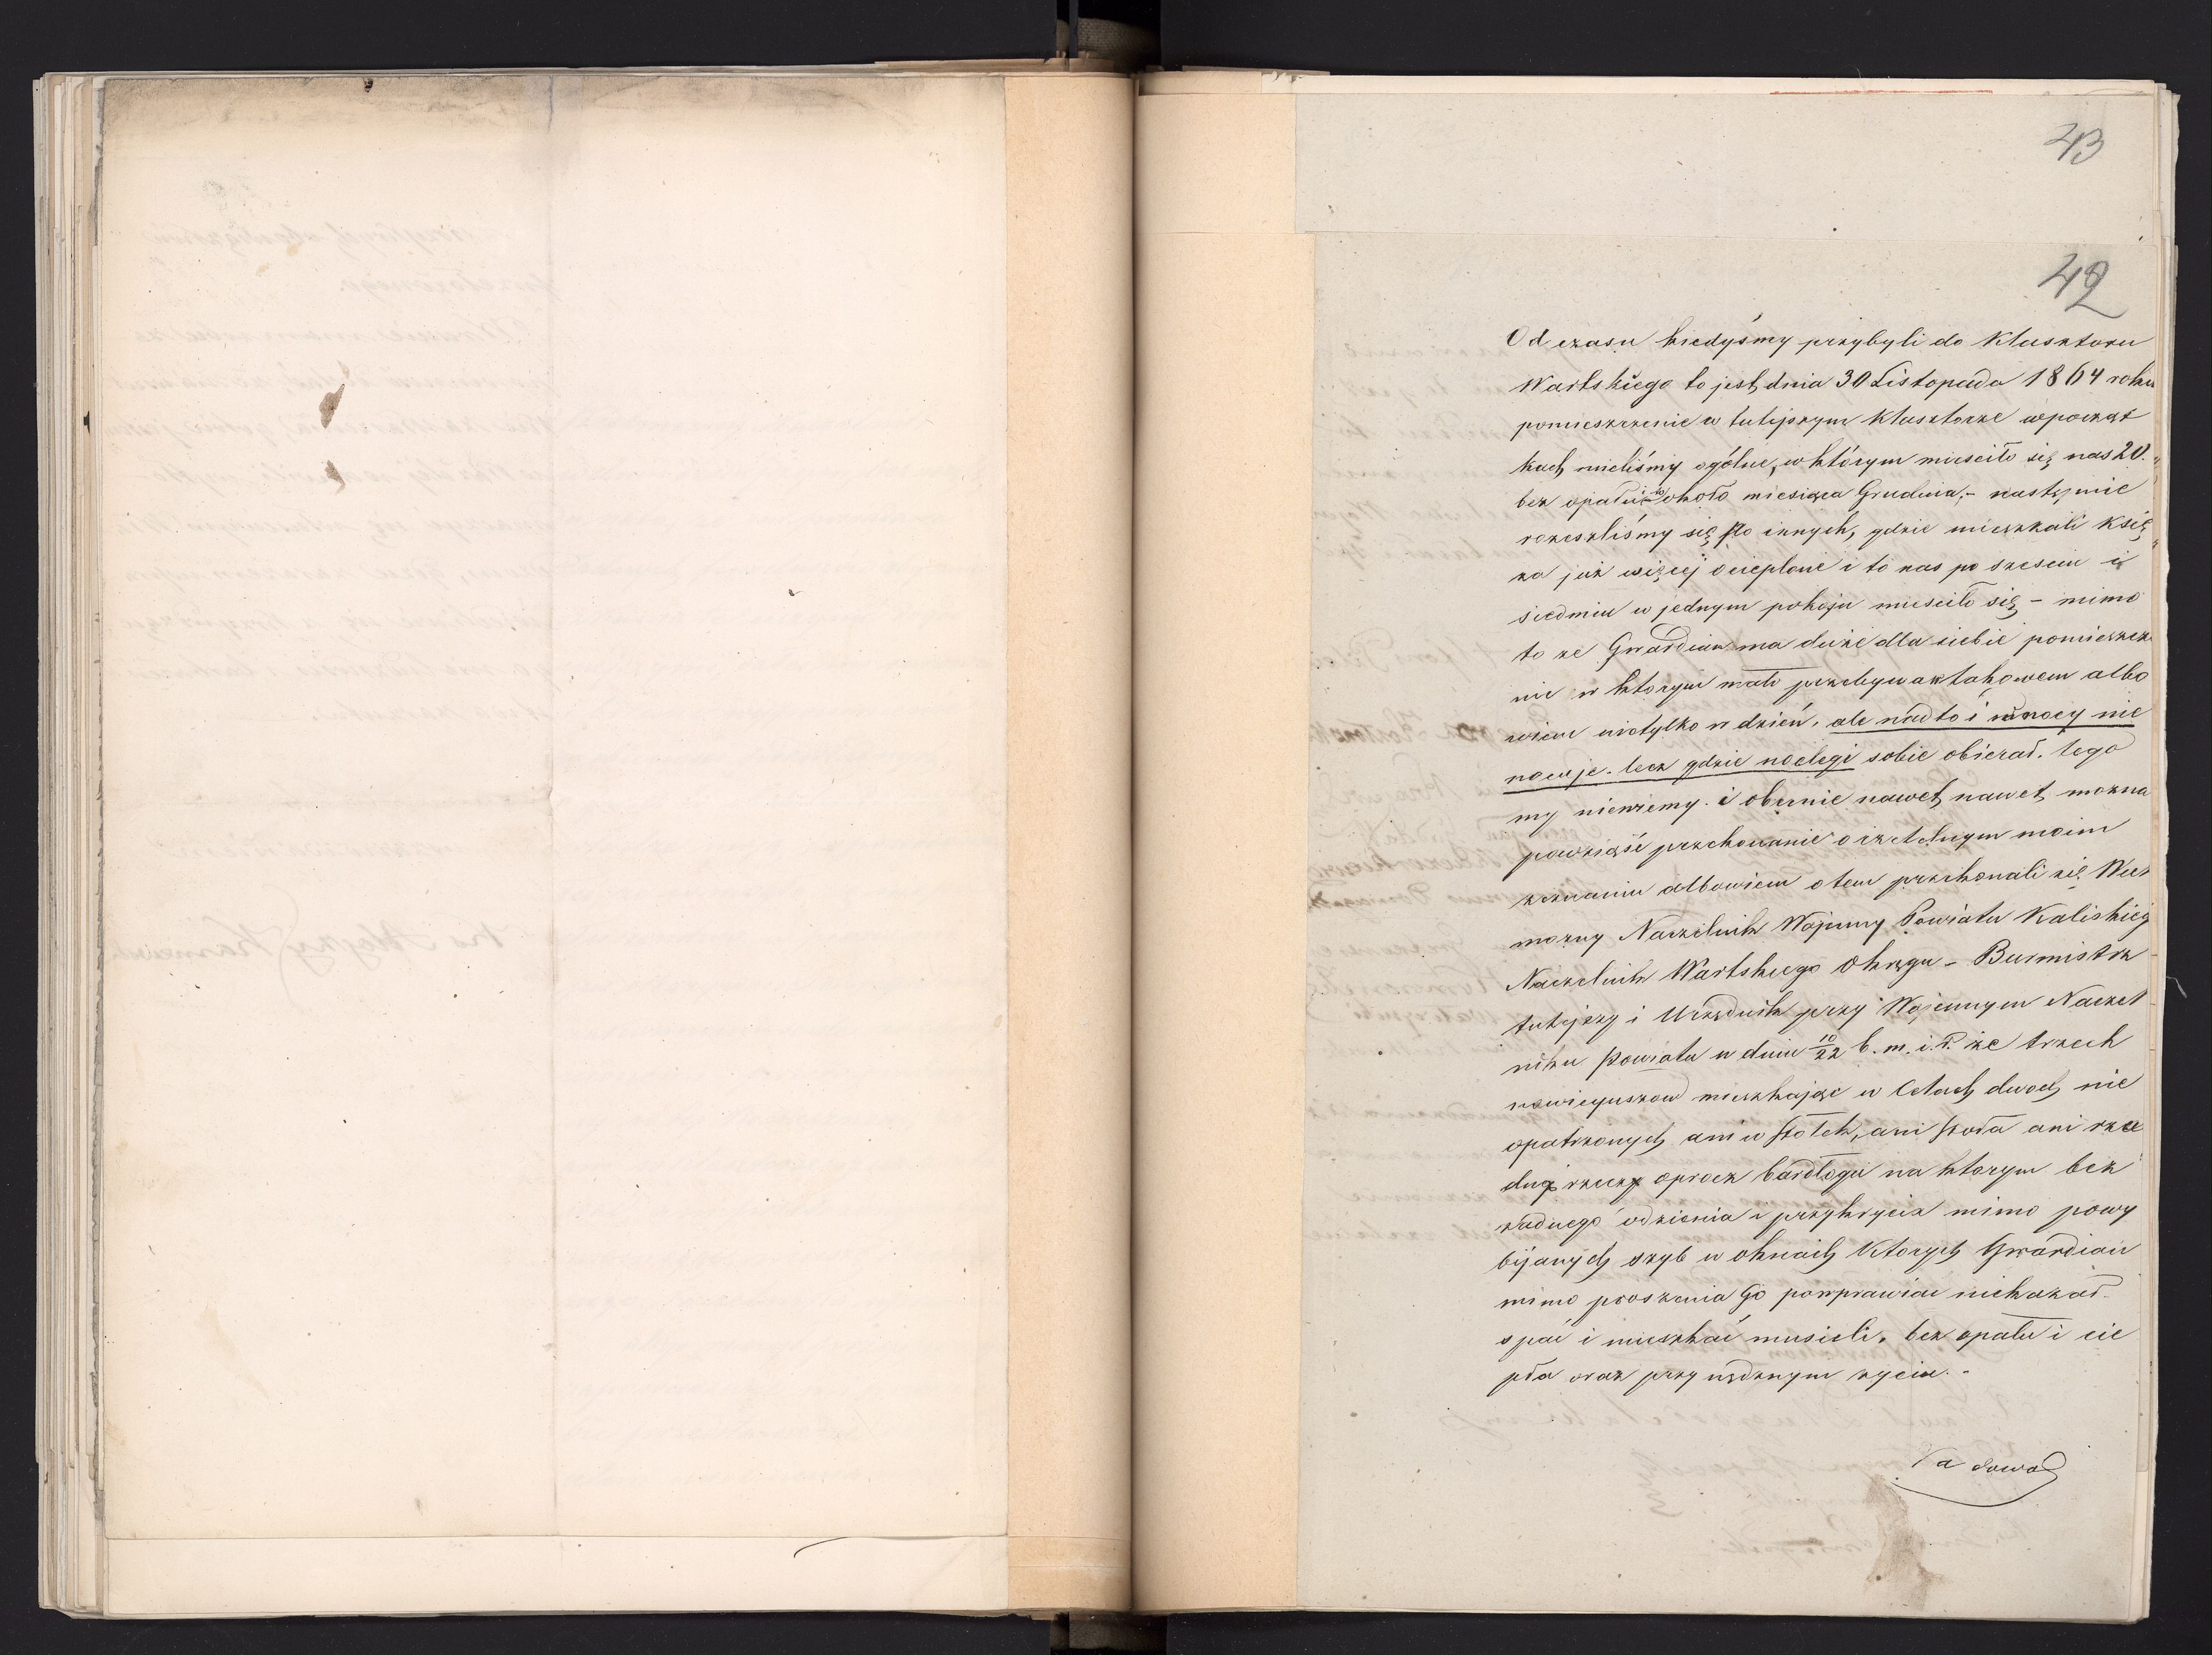 43
42
Od czasu kiedyśmy przybyli do Klasztoru
Wartskiego to jest dnia 30 Listopada 1864 roku
pomieszczenie w tutejszym Klasztorze wpocząt
kach mieliśmy ogólne, w którym mieściło się nas 20.
bez opału i to około miesiąca Grudnia,- następnie
rozeszliśmy się po innych, gdzie mieszkali Księ
za już więcej ocieplone i to nas po szesciu i
siedmiu w jednym pokoju mieściło się - mimo
to ze Gwardian ma duże dla siebie pomieszcze
nie w ktorym mało przebywa albo
wiem nietylko w dzień, ale nadto i w nocy nie
nocuje. lecz gdzie noclegi sobie obierał. tego
my niewiemy. i obecnie nawet, nawet mozna
powziąść przekonanie o rzetelnym moim
zeznaniu albowiem otem przekonali się Wiel
mozny Naczelnik Wojenny Powiatu Kaliskieg
Naczelnik Wartskiego Okręgu - Burmistrz
tutejszy i Urzędnik przy Wojennym Naczel
niku Powiatu w dniu 10/22 b. m. i. r. że trzech
nowicyuszow mieszkając w Celach dwoch nie
opatrzonych ani w stołek, ani stoła ani
rzeczy oprocz barłogu na ktorym bez
żadnego odzienia i przykrycia mimo powy
bijanych szyb w oknach Ktorych Gwardian
mimo proszenia Go powprawiac niekazał
spać i mieszkać musieli. bez opału i cie
pła oraz przy nędznym zyciu.-